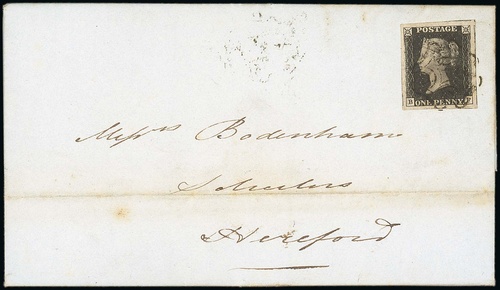 POSTAGE
ONE PENNY
Messrs Bodenham
Solicitors
Hereford